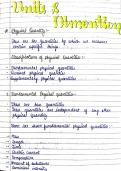 Units &
Dimention
# Physical Quantity :-
These are the quantities by which we measure
certain specific things.
Classification of physical Quantities :-
Fundamental physical quantities
Derived physical quantities
Supplementary physical quantities
Fundamental physical Quantities :-
These are base quantities
These quantities are independent of any other
physical quantity
There are seven fundamental physical quantities :-
Mass
Length
Time
Electric current
Temperature
Amount of substance
Luminous intensity